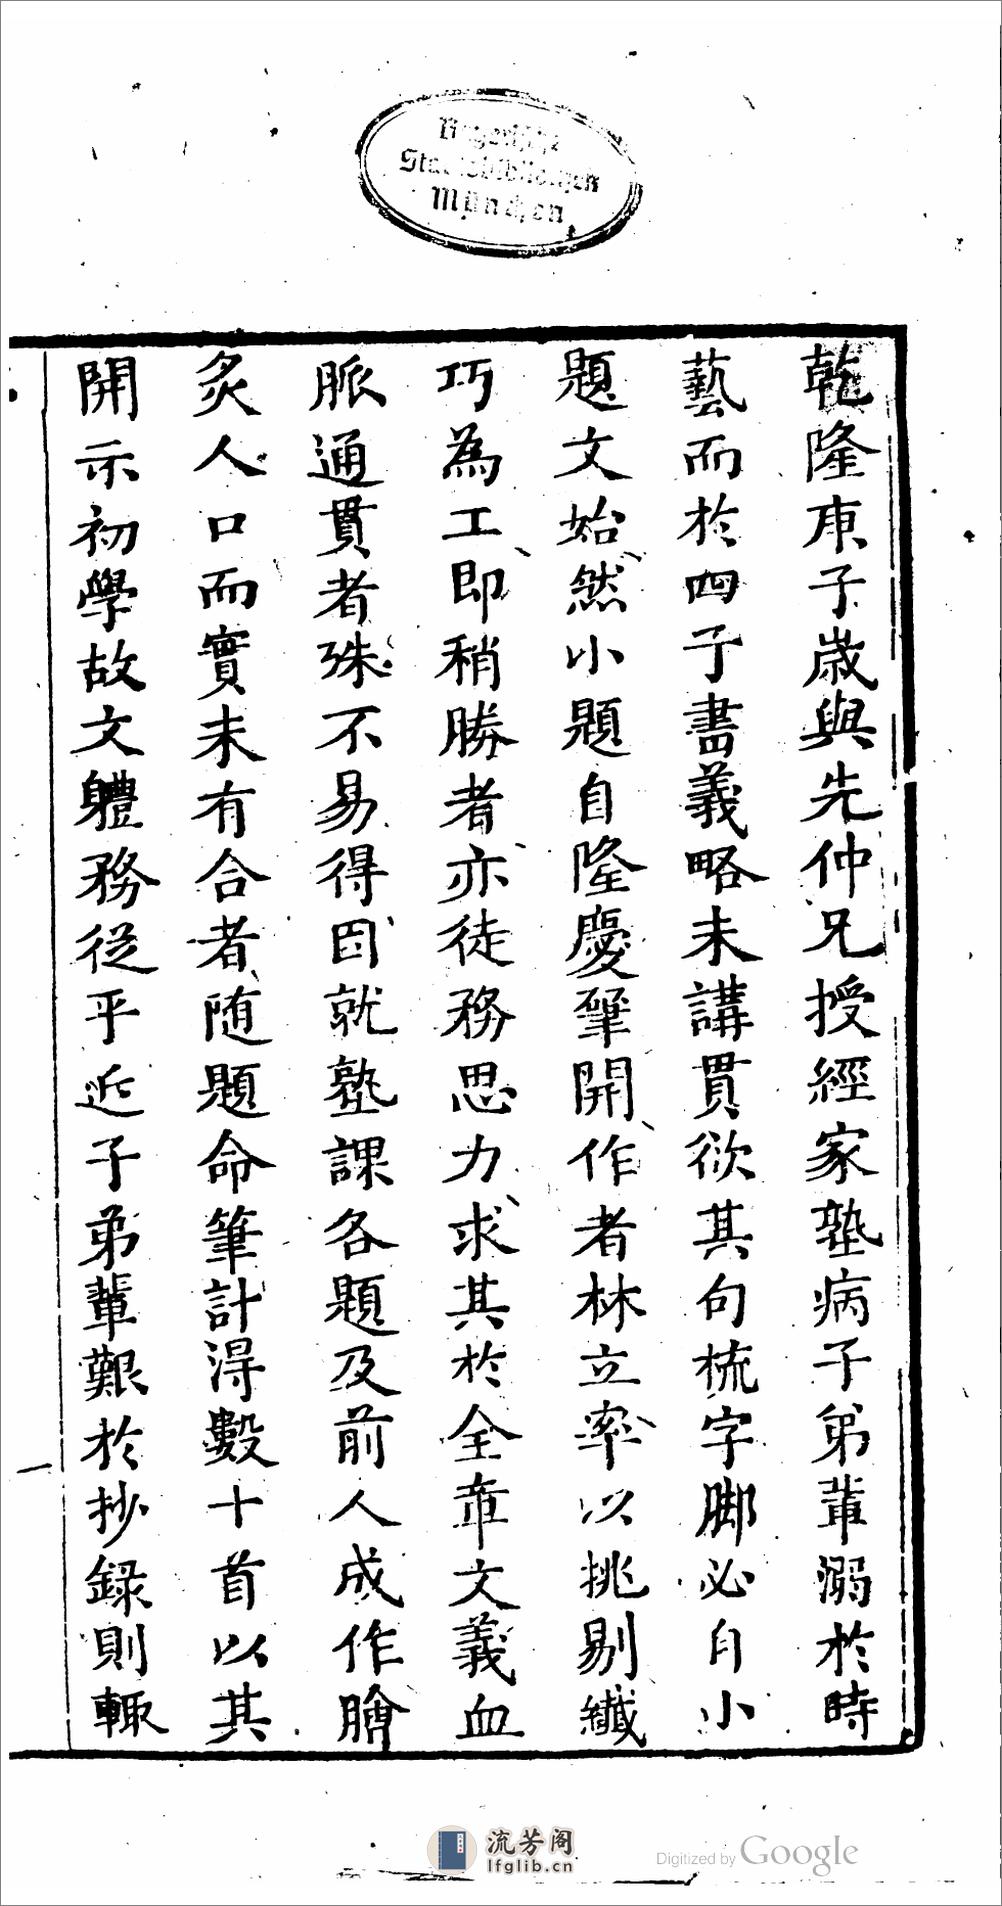 Bayerische
Staatsbibliothek
München
乾隆庚子歲與先仲兄授經家塾病子弟輩溺於時
藝而於四子書義略未講貫欲其句梳字脚必自小
題文始然小題自隆慶肇開作者林立率以挑剔纖
巧為工即稍勝者亦徒務思力求其於全章文義血
脈通貫者殊不易得因就塾課各題及前人成作膾
炙人口而實未有合者随題命筆計得數十首以其
開示初學故文體務從乎近子弟輩艱於抄録則輒
流芳阁
lfglib.cn
Digitized by Google